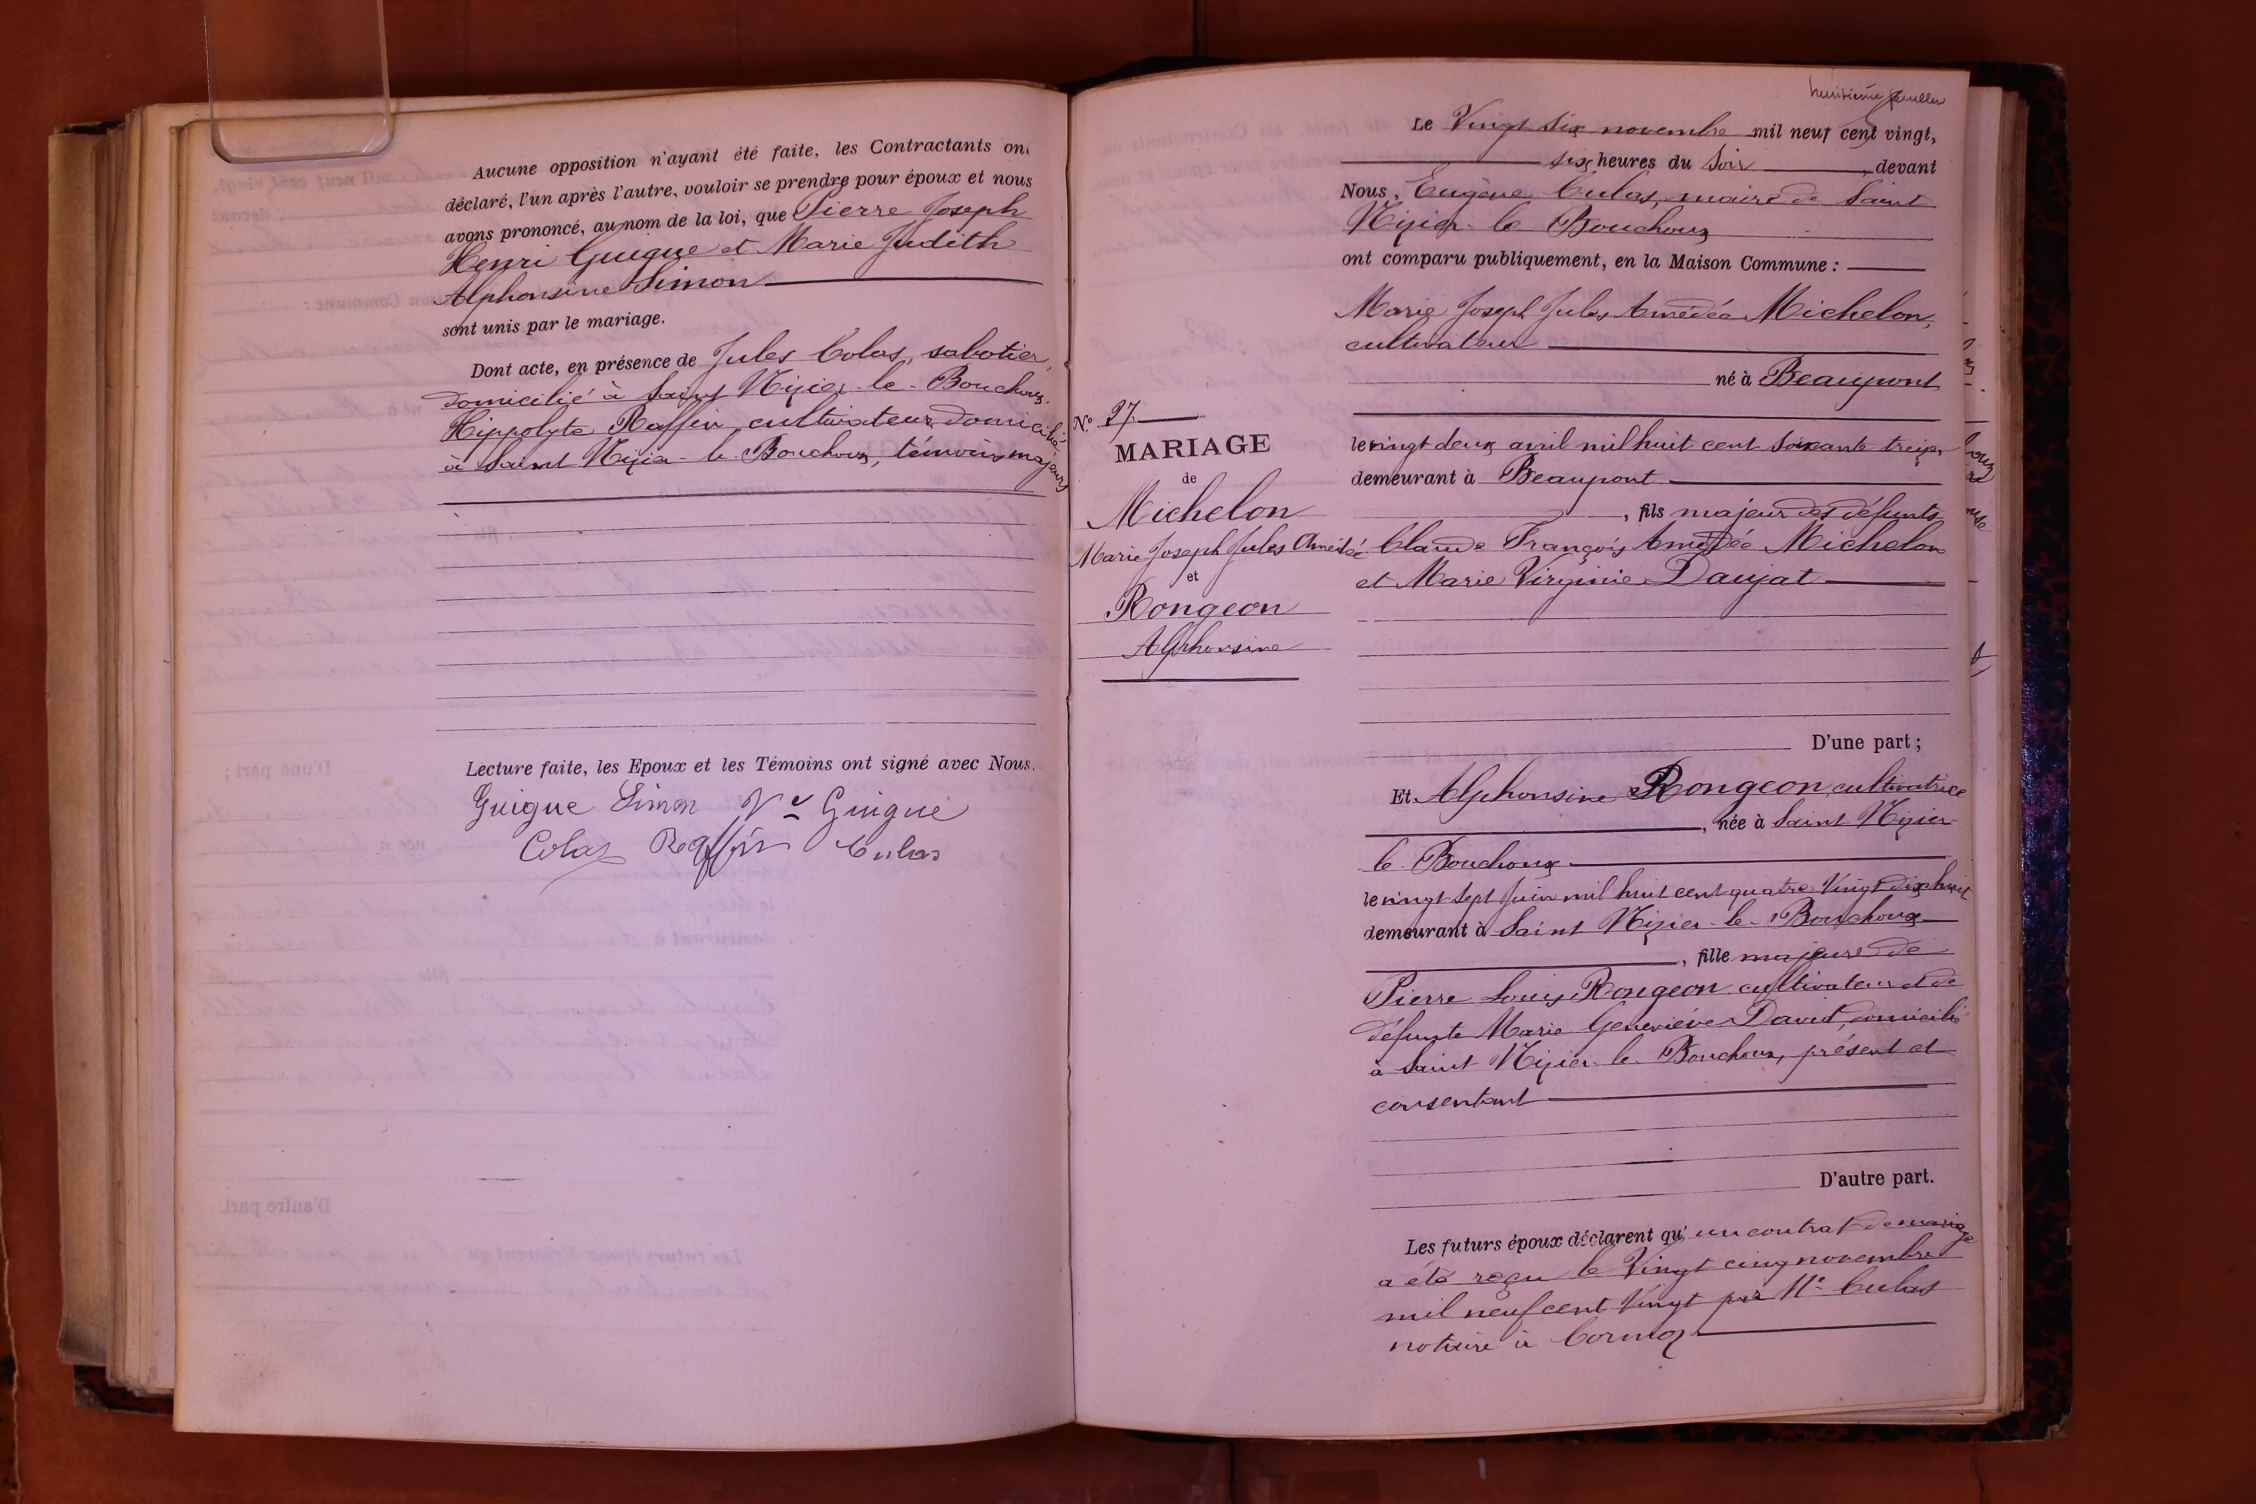 Aucune opposition n'ayant été faite, les Contractants ont
déclaré, l'un après l'autre, vouloir se prendre pour époux et nous
avons prononcé, au nom de la loi, que Pierre Joseph
Henri Guigue et Marie Judith
Alphonsine Simon
sont unis par le mariage.
Dont acte, en présence de Jules Colas, sabotier,
domicilié à Saint Nizier-le-Bouchoux.
Hippolyte Raffin cultivateur domicilié
à Saint Nizier-le Bouchoux, témoins majeurs
Lecture faite, les Epoux et les Témoins ont signé avec Nous.
Guigue Simon Ve Guigue
Colas Raffin Culas
huitième feuillet
Le Vingt six novembre mil neuf cent vingt,
six heures du soir, devant
Nous, Eugène Culas, maire de Saint
Nizier-le Bouchoux
ont comparu publiquement, en la Maison Commune :
Marie Joseph Jules Amédée Michelon,
cultivateur
né à Beaupont
le vingt deux avril mil huit cent soixante treize,
demeurant à Beaupont
, fils majeur des défunts
Claude François Amédée Michelon
et Marie Virginie Daujat
D'une part ;
Et Alphonsine Rongeon, cultivatrice
, née à Saint Nizier-
le-Bouchoux
le vingt sept Juin mil huit cent quatre Vingt dix huit
demeurant à Saint Nizier-le-Bouchoux
, fille majeure de
Pierre Louis Rongeon cultivateur et de
défunte Marie Geneviève David, domicilié
à Saint Nizier-le Bouchoux, présent et
consentant
D'autre part.
Les futurs époux déclarent qu'un contrat de mariage
a été reçu le Vingt cinq novembre
mil neuf cent Vingt par Me Culas
notaire à Cormoz
No 27
MARIAGE
de
Michelon
Marie Joseph Jules Amédée
et
Rongeon
Alphonsine